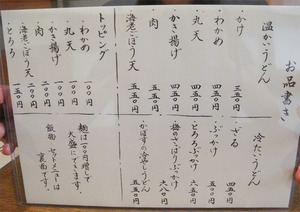 お品書き
温かいうどん
かけ 三五〇円
わかめ 四五〇円
丸天 四五〇円
かき揚げ 四五〇円
肉 五五〇円
海老・ごぼう天 五五〇円
冷たいうどん
ざる 四五〇円
ぶっかけ 四五〇円
とろろぶっかけ 五五〇円
梅のさっぱりぶっかけ 六八〇円
かぼすの冷やしうどん 五五〇円
トッピング
わかめ 一〇〇円
丸天 一〇〇円
かき揚げ 一〇〇円
肉 二〇〇円
海老・ごぼう天 二五〇円
とろろ 一五〇円
麺は一〇〇円増しで
大盛にできます。
飯物 セットメニューは
裏面です。